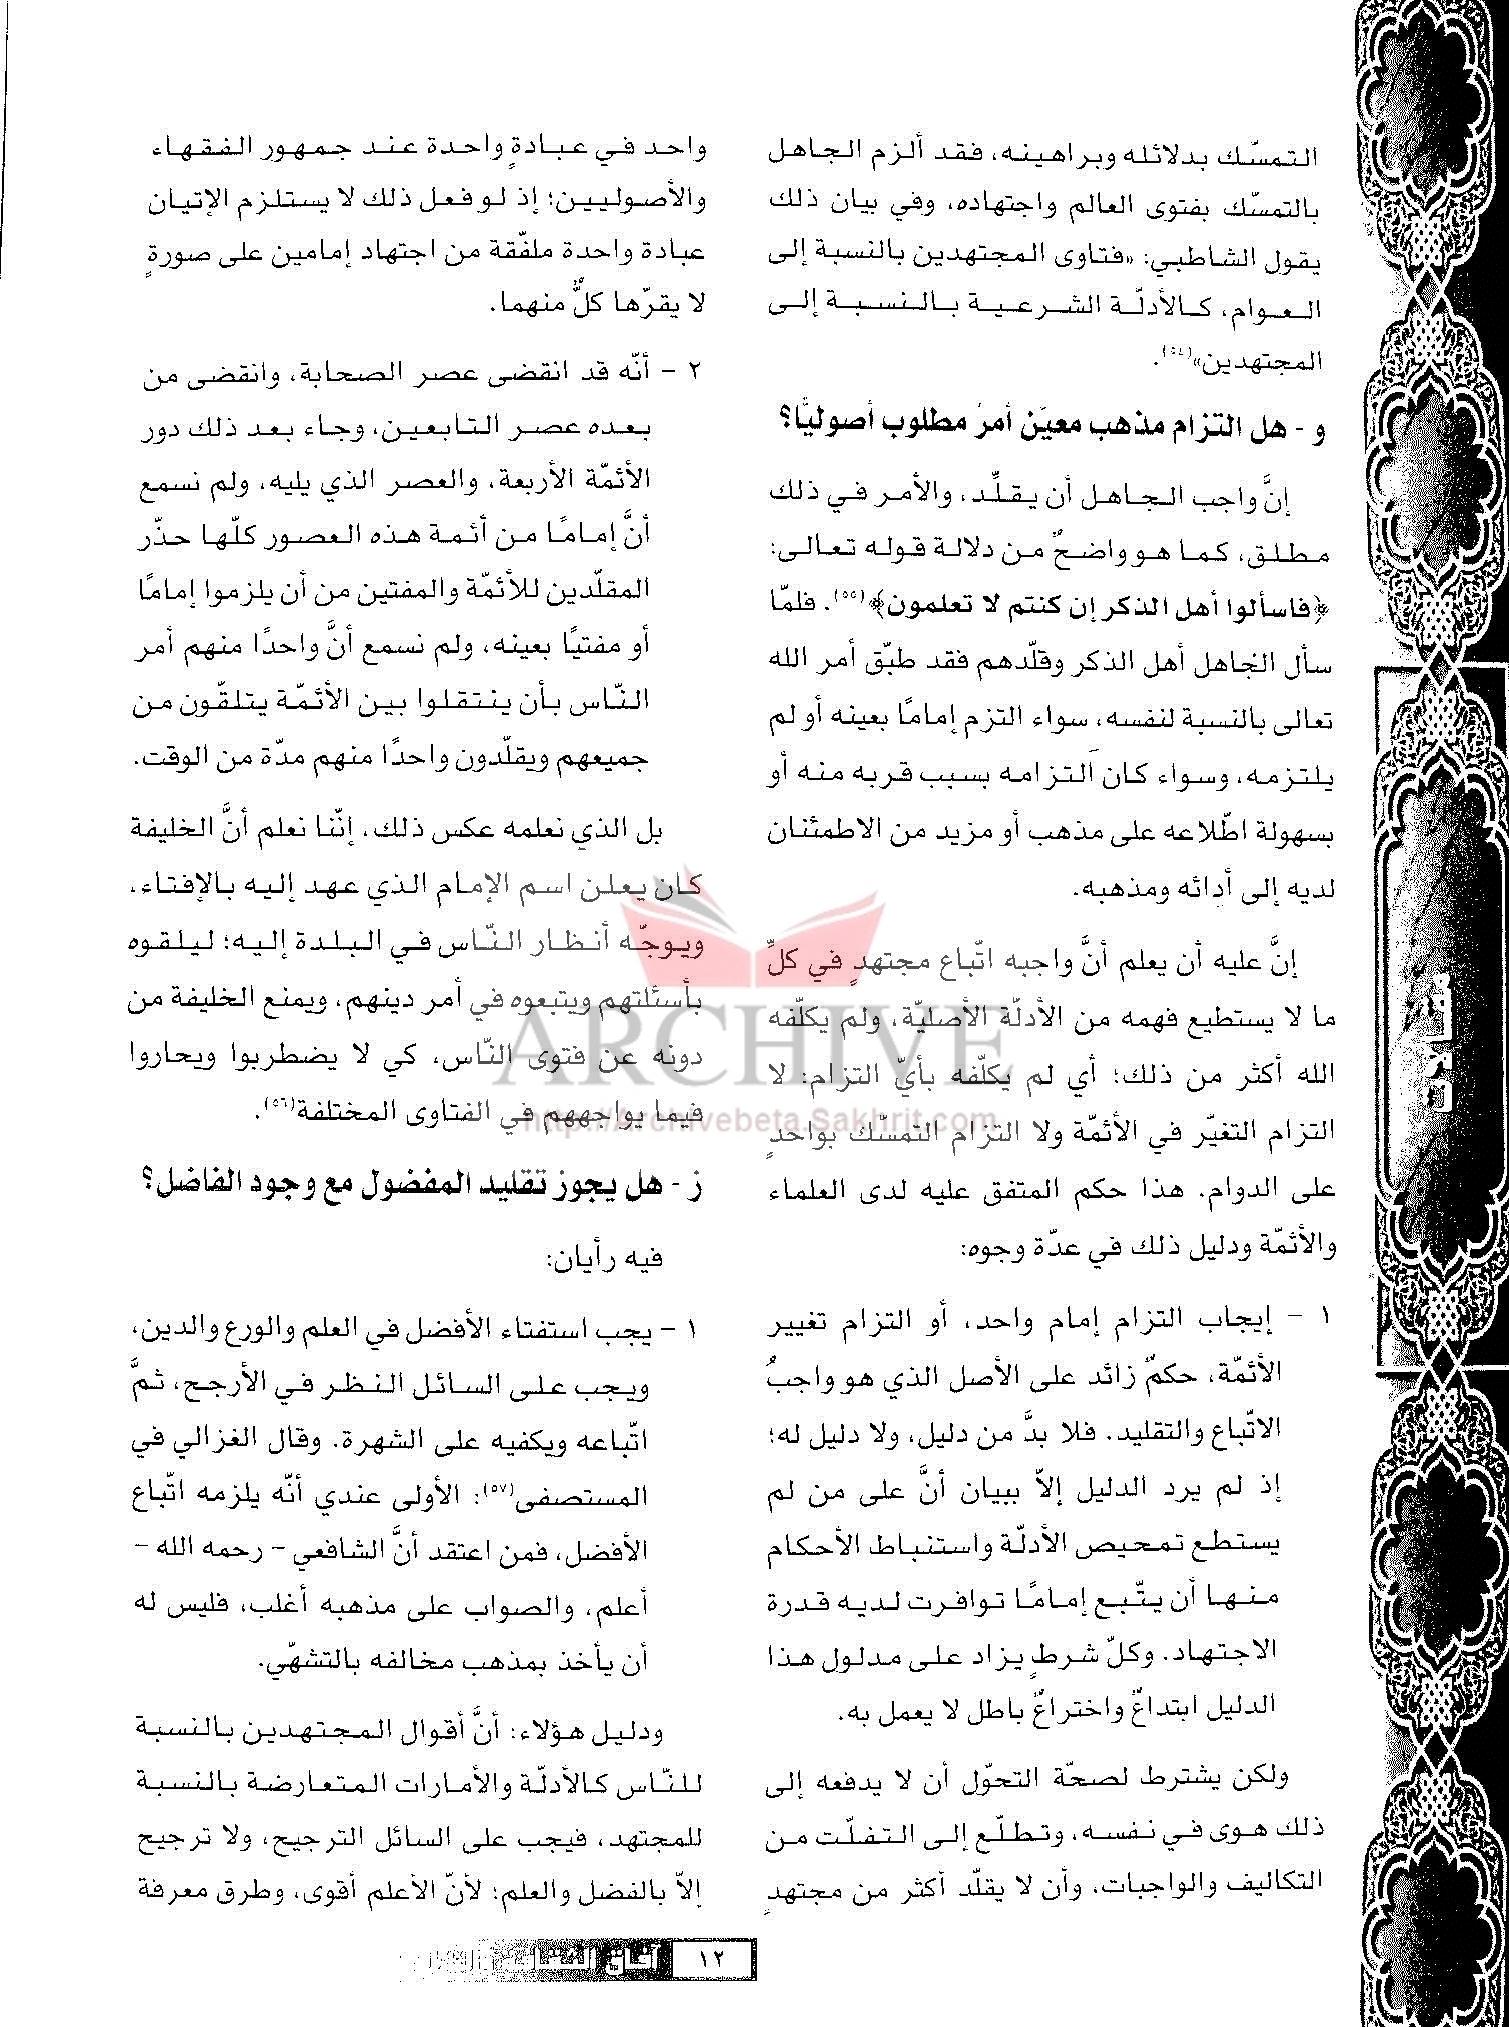 التمسّك بدلائله وبراهينه، فقد ألزم الجاهل
بالتمسّك بفتوى العالم واجتهاده، وفي بيان ذلك
يقول الشاطبي: «فتاوى المجتهدين بالنسبة إلى
العوام، كالأدلّة الشرعية بالنسبة إلى
المجتهدين»(٥٤).
و - هل التزام مذهب معيّن أمرٌ مطلوب أصوليًّا؟
إنَّ واجب الجاهل أن يقلِّد، والأمر في ذلك
مطلق، كما هو واضحٌ من دلالة قوله تعالى:
﴿فاسألوا أهل الذكر إن كنتم لا تعلمون﴾(٥٥). فلمّا
سأل الجاهل أهل الذكر وقلّدهم فقد طبّق أمر الله
تعالى بالنسبة لنفسه، سواء التزم إمامًا بعينه أو لم
يلتزمه، وسواء كان التزامه بسبب قربه منه أو
بسهولة اطّلاعه على مذهب أو مزيد من الاطمئنان
لديه إلى أدائه ومذهبه.
إنَّ عليه أن يعلم أنَّ واجبه اتّباع مجتهدٍ في كلِّ
ما لا يستطيع فهمه من الأدلّة الأصليّة، ولم يكلّفه
الله أكثر من ذلك؛ أي لم يكلّفه بأيّ التزام: لا
التزام التغيّر في الأئمّة ولا التزام التمسّك بواحدٍ
على الدوام. هذا حكم المتفق عليه لدى العلماء
والأئمّة ودليل ذلك في عدّة وجوه:
١ - إيجاب التزام إمام واحد، أو التزام تغيير
الأئمّة، حكمٌ زائد على الأصل الذي هو واجبُ
الاتّباع والتقليد. فلا بدَّ من دليل، ولا دليل له؛
إذ لم يرد الدليل إلاّ ببيان أنَّ على من لم
يستطع تمحيص الأدلّة واستنباط الأحكام
منها أن يتّبع إمامًا توافرت لديه قدرة
الاجتهاد. وكلّ شرطٍ يزاد على مدلول هذا
الدليل ابتداعٌ واختراعٌ باطل لا يعمل به.
ولكن يشترط لصحّة التحوّل أن لا يدفعه إلى
ذلك هوى في نفسه، وتطلّع إلى التفلّت من
التكاليف والواجبات، وأن لا يقلّد أكثر من مجتهدٍ
واحد في عبادةٍ واحدة عند جمهور الفقهاء
والأصوليين؛ إذ لو فعل ذلك لا يستلزم الإتيان
عبادة واحدة ملفّقة من اجتهاد إمامين على صورةٍ
لا يقرّها كلٌّ منهما.
٢ - أنّه قد انقضى عصر الصحابة، وانقضى من
بعده عصر التابعين، وجاء بعد ذلك دور
الأئمّة الأربعة، والعصر الذي يليه، ولم نسمع
أنَّ إمامًا من أئمة هذه العصور كلّها حذّر
المقلّدين للأئمّة والمفتين من أن يلزموا إمامًا
أو مفتيًا بعينه، ولم نسمع أنَّ واحدًا منهم أمر
النّاس بأن ينتقلوا بين الأئمّة يتلقّون من
جميعهم ويقلّدون واحدًا منهم مدّة من الوقت.
بل الذي نعلمه عكس ذلك، إنّنا نعلم أنَّ الخليفة
كان يعلن اسم الإمام الذي عهد إليه بالإفتاء،
ويوجّه أنظار النّاس في البلدة إليه؛ ليلقوه
بأسئلتهم ويتبعوه في أمر دينهم، ويمنع الخليفة من
دونه عن فتوى النّاس، كي لا يضطربوا ويحاروا
فيما يواجههم في الفتاوى المختلفة(٥٦).
ز - هل يجوز تقليد المفضول مع وجود الفاضل؟
فيه رأيان:
١ - يجب استفتاء الأفضل في العلم والورع والدين،
ويجب على السائل النظر في الأرجح، ثمَّ
اتّباعه ويكفيه على الشهرة. وقال الغزالي في
المستصفى(٥٧): الأولى عندي أنّه يلزمه اتّباع
الأفضل، فمن اعتقد أنَّ الشافعي - رحمه الله -
أعلم، والصواب على مذهبه أغلب، فليس له
أن يأخذ بمذهب مخالفه بالتشهّي.
ودليل هؤلاء: أنَّ أقوال المجتهدين بالنسبة
للنّاس كالأدلّة والأمارات المتعارضة بالنسبة
للمجتهد، فيجب على السائل الترجيح، ولا ترجيح
إلاّ بالفضل والعلم؛ لأنّ الأعلم أقوى، وطرق معرفة
ARCHIVE
http://Archivebeta.Sakhrit.com
١٢
آفاق